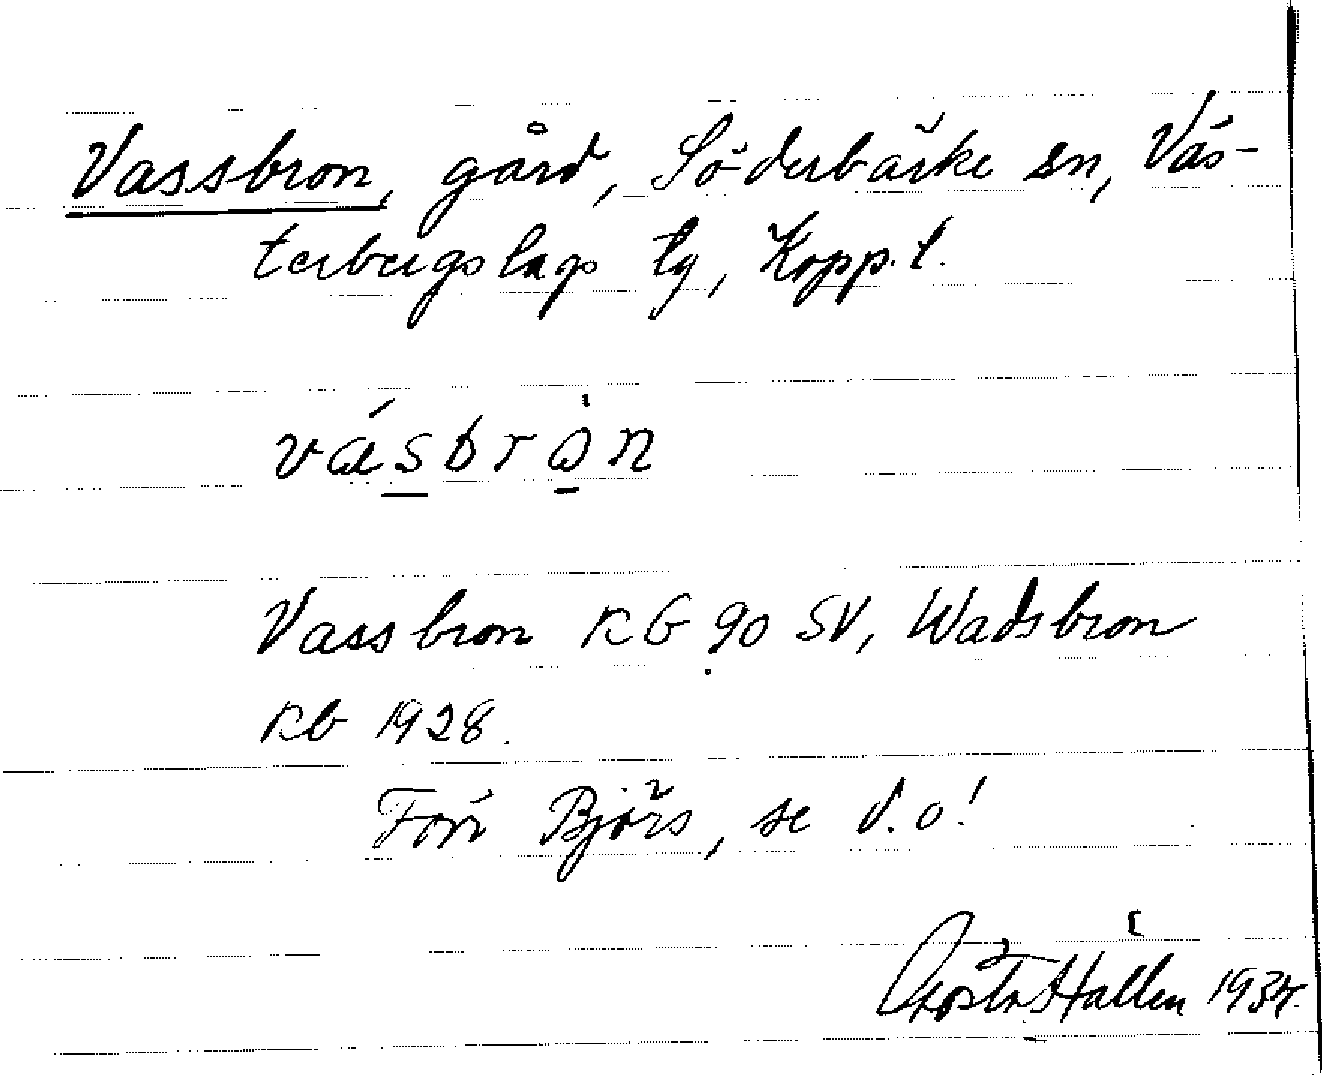 Vassbron, gård, Söderbärke sn, Väs-
terbergslags tg, Kopp.l.
vásbròn
Vassbron KG 90 SV, Wadsbron
Kb 1928.
Förr Björs, se d.o!
Gösta Hallén 1934.